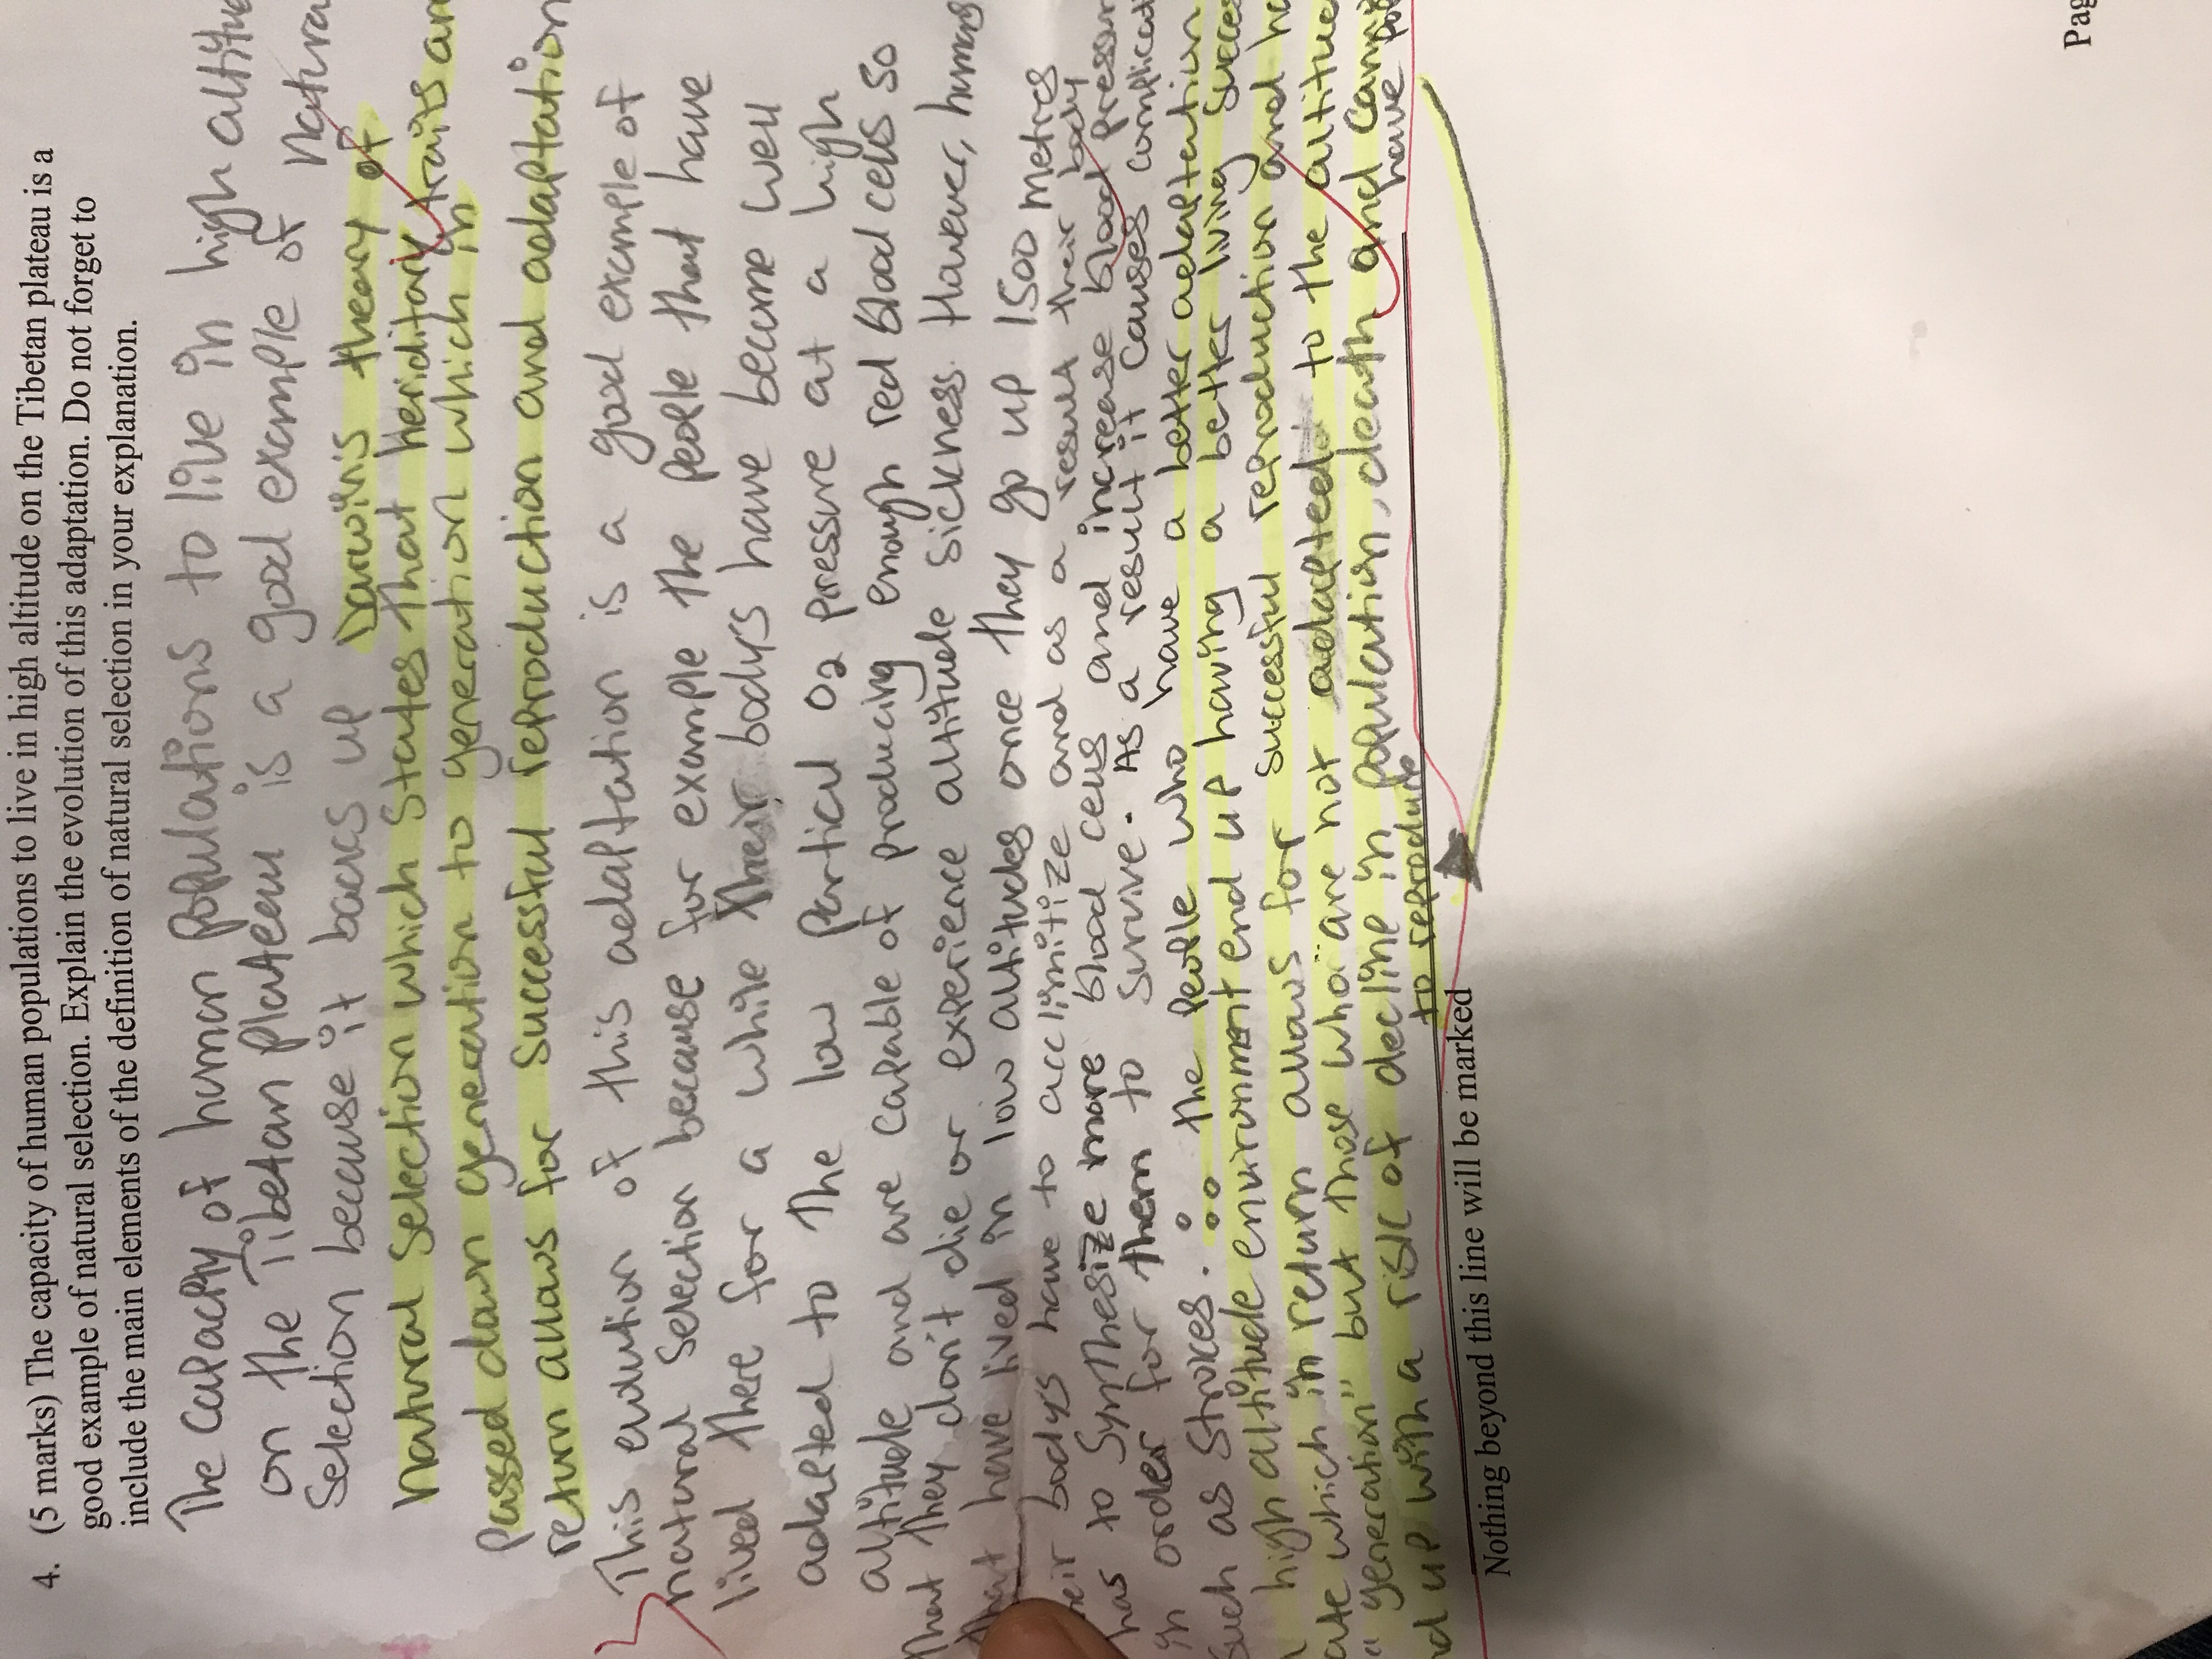 4. (5 marks) The capacity of human populations to live in high altitude on the Tibetan plateau is a
good example of natural selection. Explain the evolution of this adaptation. Do not forget to
include the main elements of the definition of natural selection in your explanation.
The capacity of human populations to live in high altitu
on the Tibetan plateau is a good example of natura
Selection because it backs up Darwin's theory of
natural selection which states that heriditary traits ar
passed down generation to generation which in
return allows for successful reproduction and adaptation
This evolution of this adaptation is a good example of
natural selection because for example the people that have
lived there for a while Their bodys have become well
adapted to the low partical O2 pressure at a high
altitude and are capable of producing enough red blood cells so
that they don't die or experience altitude sickness. However, humas
that have lived in low altitudes once they go up 1500 metres
their bodys have to acclimitize and as a result their body
has to synthesize more blood cells and increase blood pressur
in order for them to survive. As a result it causes complicat
such as strokes. ∴ the people who have a better adaptation
high altitude environment end up having a better living succes
ate which in return allows for successful reproduction and ha
"generation" but those who are not adapted to the altitude
nd up with a risk of decline in population, death and cann
have
to reproduce
Nothing beyond this line will be marked
Pag